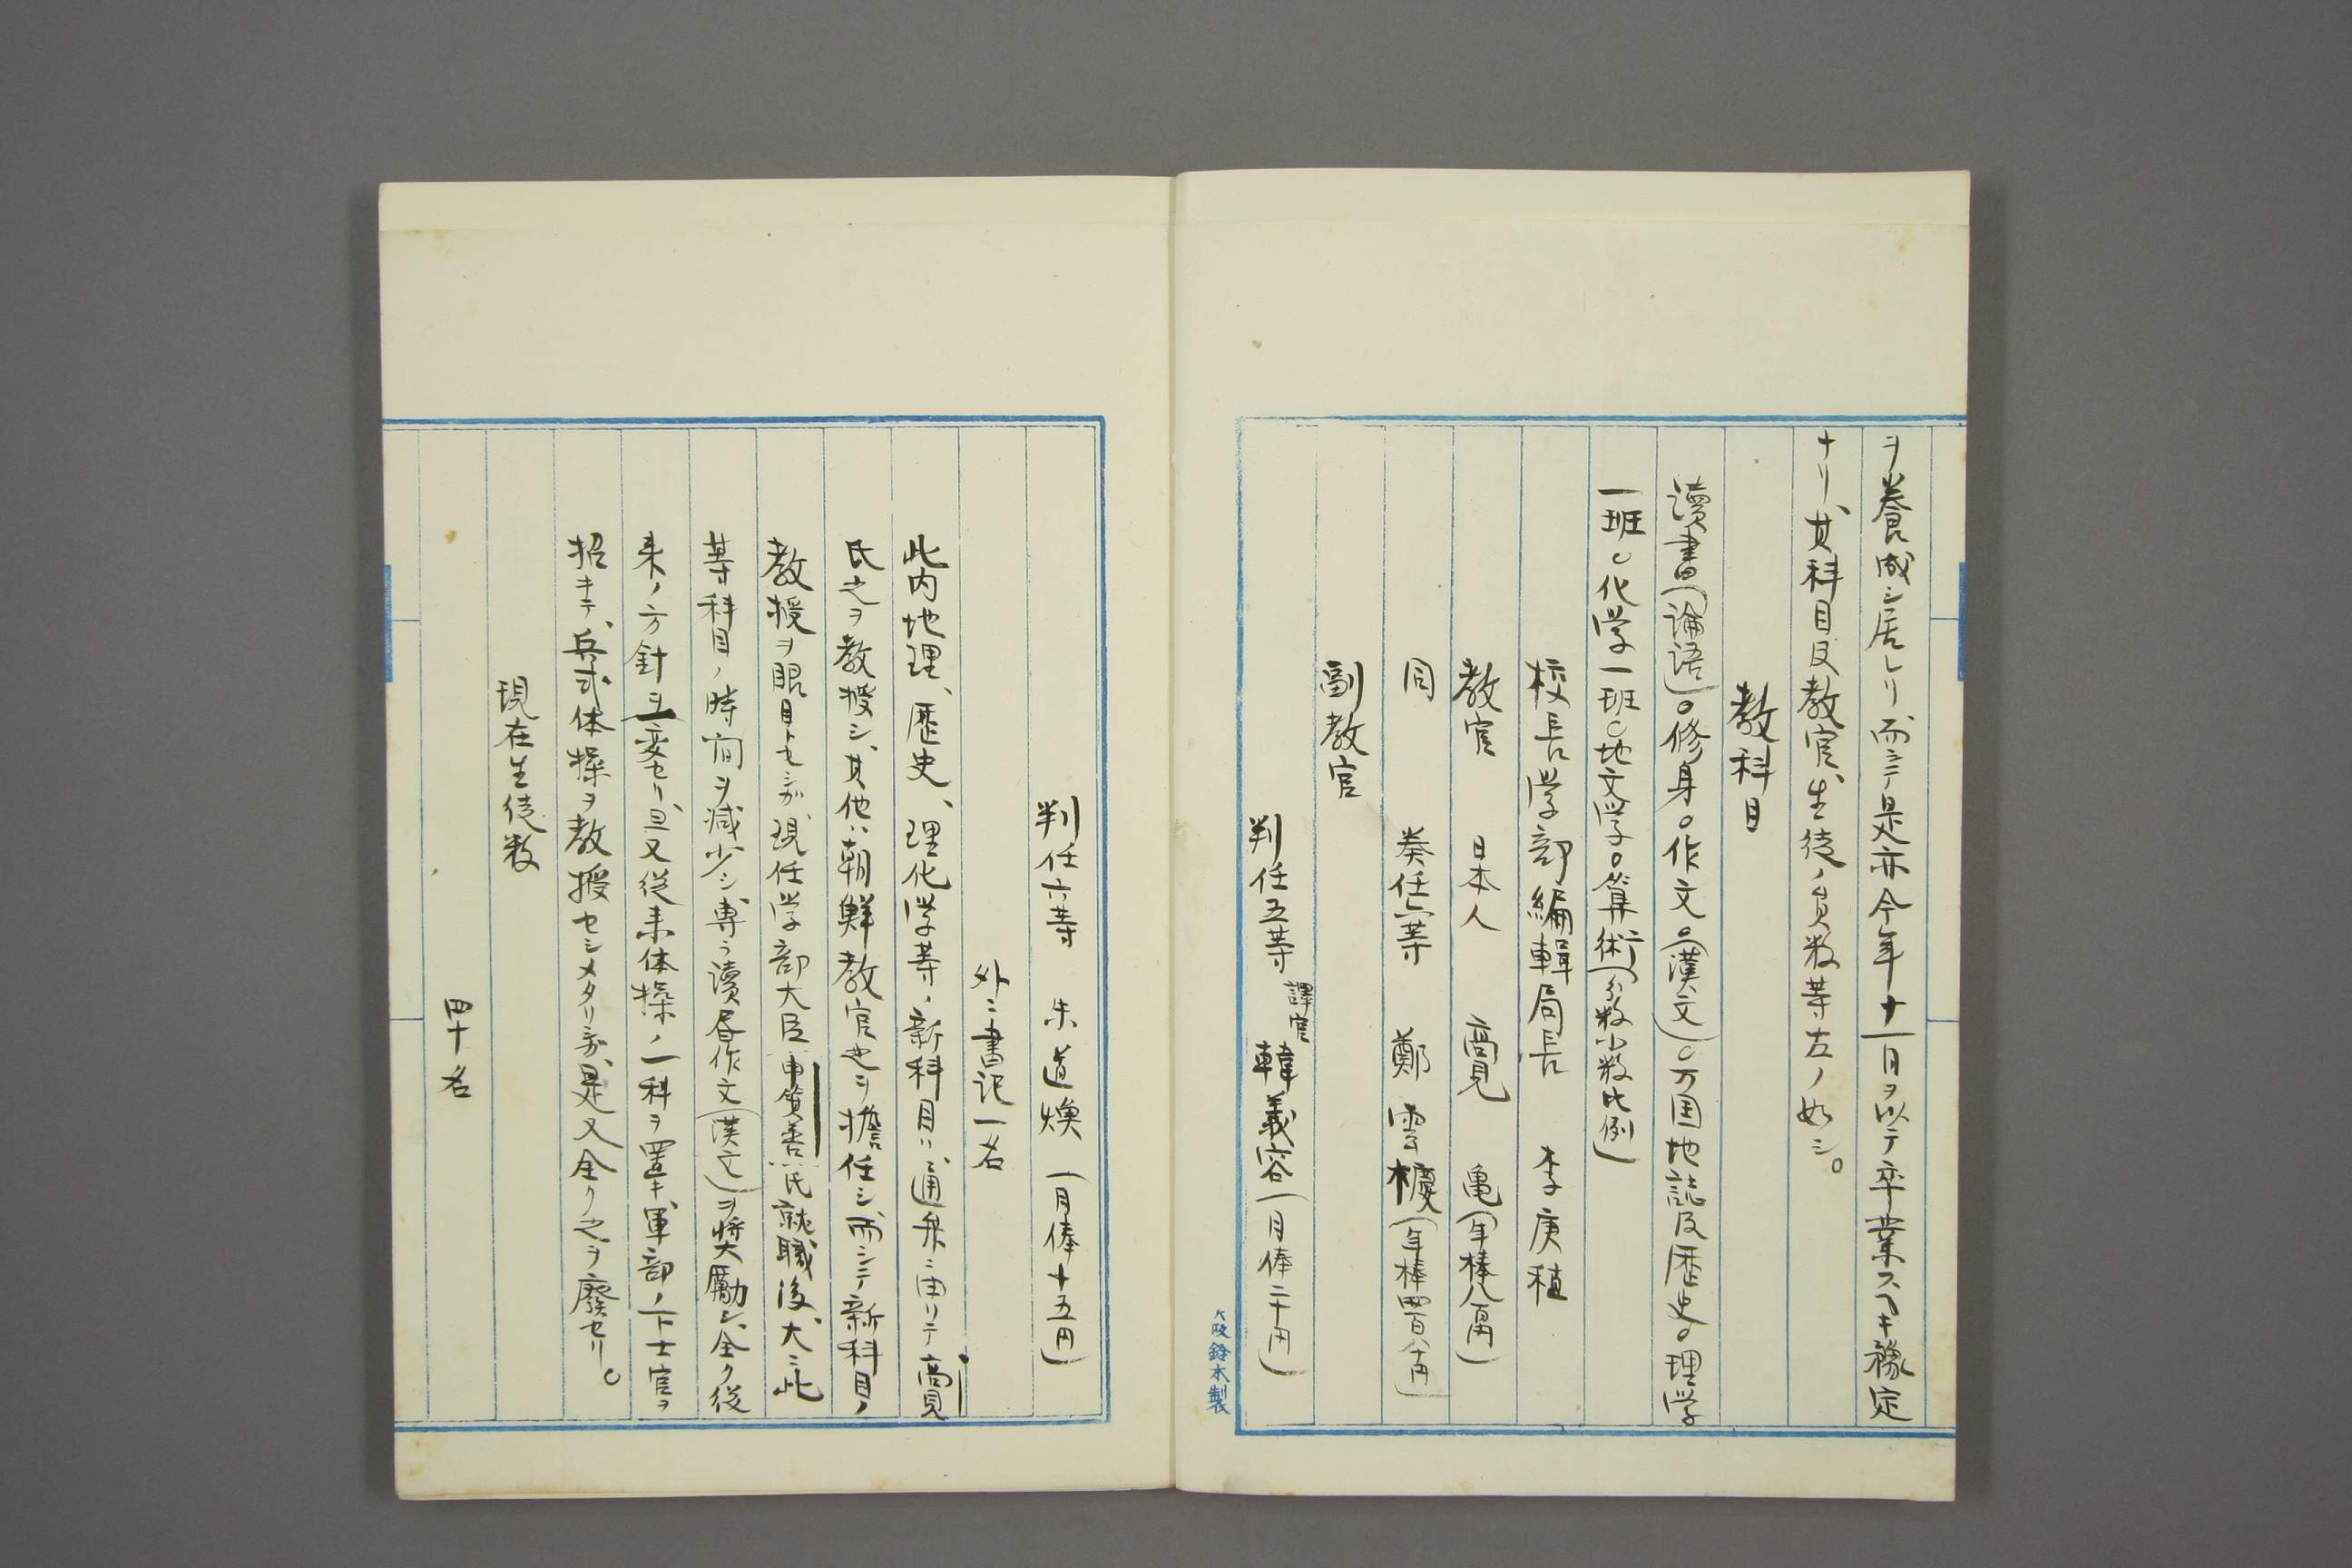 ヲ養成シ居レリ而シテ是亦今年十一月ヲ以テ卒業スヘキ豫定
ナリ、其科目及教官、生徒ノ員数等左ノ如シ。
教科目
讀書(論語)。修身。作文。(漢文)。万国地誌及歴史。理学
一班。化学一班。地文学。算術(分数小数比例)
校長学部編輯局長 李庚稙
教官 日本人 髙見亀(年棒八百円)
同 奏任六等 鄭雲櫘(年棒四百八十円)
副教官
判任五等 譯官 韓義容(月俸二十円)
大阪鈴木製
判任六等 朱道煥(月俸十五円)
外ニ書記一名
此内地理、歴史、理化学等ノ新科目ハ、通弁ニ由リテ髙見
氏之ヲ教授シ、其他ハ朝鮮教官之ヲ擔任シ、而シテ新科目ノ
教授ヲ眼目トセシガ、現任学部大臣申箕善氏就職後、大ニ此
等科目ノ時間ヲ減少シ、専ラ讀書作文(漢文)ヲ奨励シ、全ク従
来ノ方針ヲ一変セリ、且又従来体操ノ一科ヲ置キ、軍部ノ下士官ヲ
招キテ、兵式体操ヲ教授セシメタリシガ、是又全ク之ヲ廃セリ。
現在生徒数
四十名